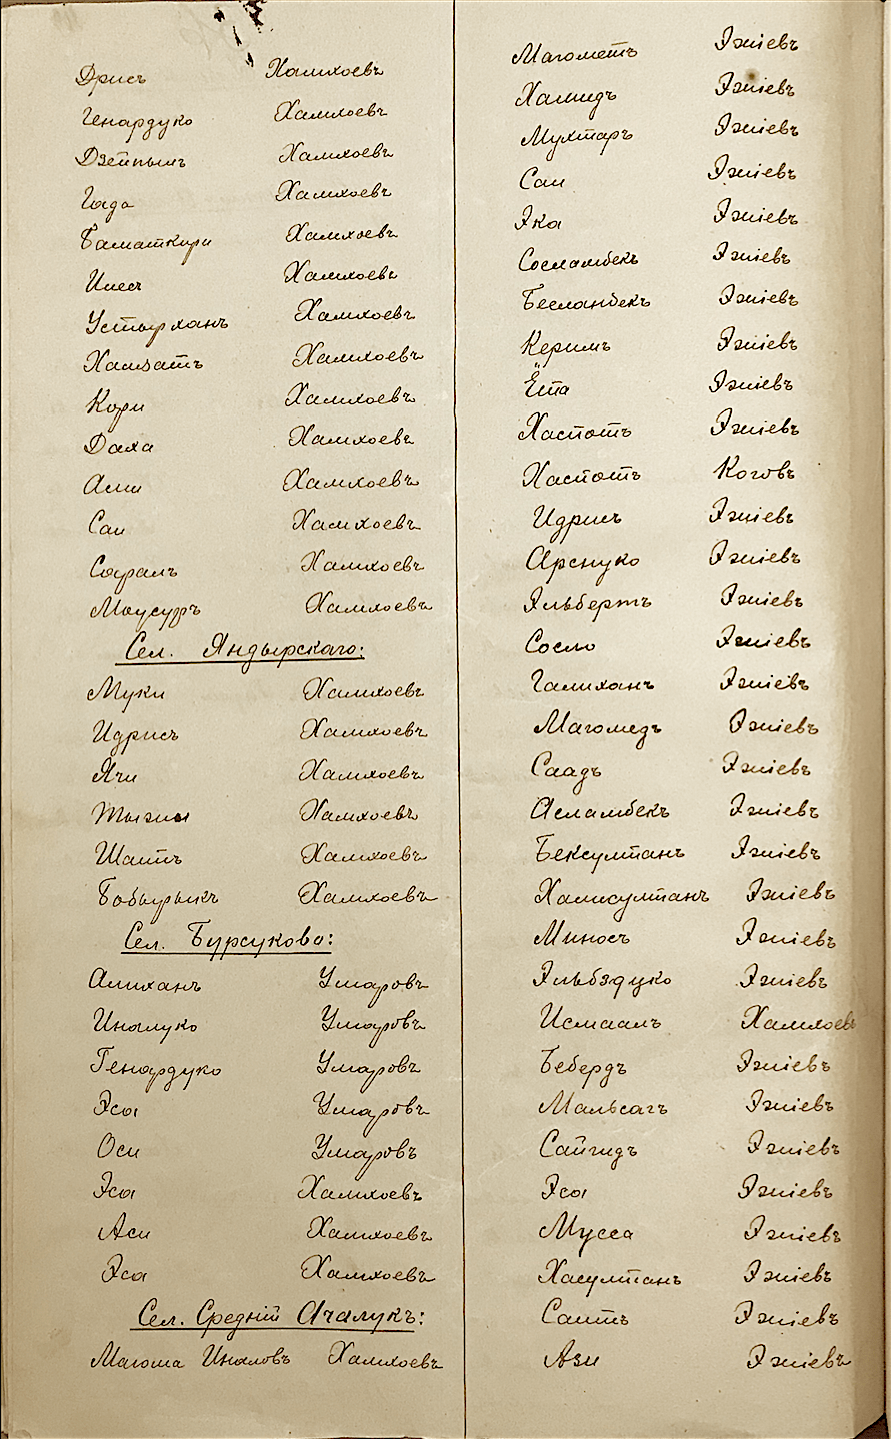 Дрисъ Хамхоевъ
Генардуко Хамхоевъ
Дзейпымъ Хамхоевъ
Гада Хамхоевъ
Баматкири Хамхоевъ
Инесъ Хамхоевъ
Устырханъ Хамхоевъ
Хамзатъ Хамхоевъ
Кори Хамхоевъ
Даха Хамхоевъ
Асми Хамхоевъ
Саи Хамхоевъ
Саралъ Хамхоевъ
Маусуръ Хамхоевъ
Сел. Яндырскаго:
Муки Хамхоевъ
Идрисъ Хамхоевъ
Ячи Хамхоевъ
Тызы Хамхоевъ
Шаптъ Хамхоевъ
Бобырыкъ Хамхоевъ
Сел. Бурсуково:
Алиханъ Умаровъ
Иналуко Умаровъ
Генардуко Умаровъ
Эса Умаровъ
Оси Умаровъ
Эса Хамхоевъ
Аси Хамхоевъ
Эса Хамхоевъ
Сел. Средній Ачалукъ:
Магома Иналовъ Хамхоевъ
Магометъ Эзіевъ
Хамидъ Эзіевъ
Мухтаръ Эзіевъ
Саи Эзіевъ
Эка Эзіевъ
Сосламбекъ Эзіевъ
Бесланбекъ Эзіевъ
Керимъ Эзіевъ
Ёта Эзіевъ
Хаспотъ Эзіевъ
Хаспотъ Коговъ
Идрисъ Эзіевъ
Арснуко Эзіевъ
Эльбертъ Эзіевъ
Сосло Эзіевъ
Галиханъ Эзіевъ
Магомедъ Эзіевъ
Саадъ Эзіевъ
Асламбекъ Эзіевъ
Бексултанъ Эзіевъ
Хамсултанъ Эзіевъ
Миносъ Эзіевъ
Эльбздуко Эзіевъ
Исмаалъ Хамхоевъ
Бебердъ Эзіевъ
Мальсагъ Эзіевъ
Сайгидъ Эзіевъ
Эса Эзіевъ
Мусса Эзіевъ
Хасултанъ Эзіевъ
Саитъ Эзіевъ
Ази Эзіевъ